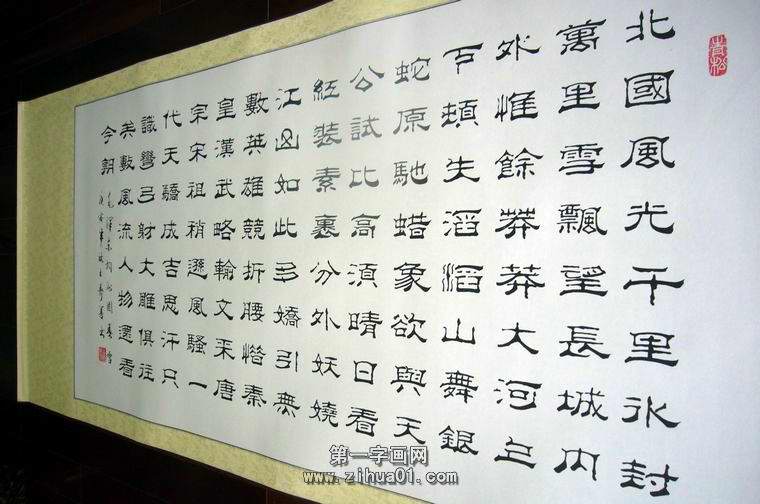 青松
北國風光千里冰封
萬里雪飄望長城內
外惟餘莽莽大河上
下頓失滔滔山舞銀
蛇原馳蜡象欲與天
公試比高須晴日看
紅裝素裹分外妖嬈
江山如此多嬌引無
數英雄競折腰惜秦
皇漢武略輸文采唐
宗宋祖稍遜風騷一
代天驕成吉思汗只
識彎弓射大雕俱往
矣數風流人物還看
今朝
毛澤東詞沁園春雪
第一字画网
www.zihua01.com